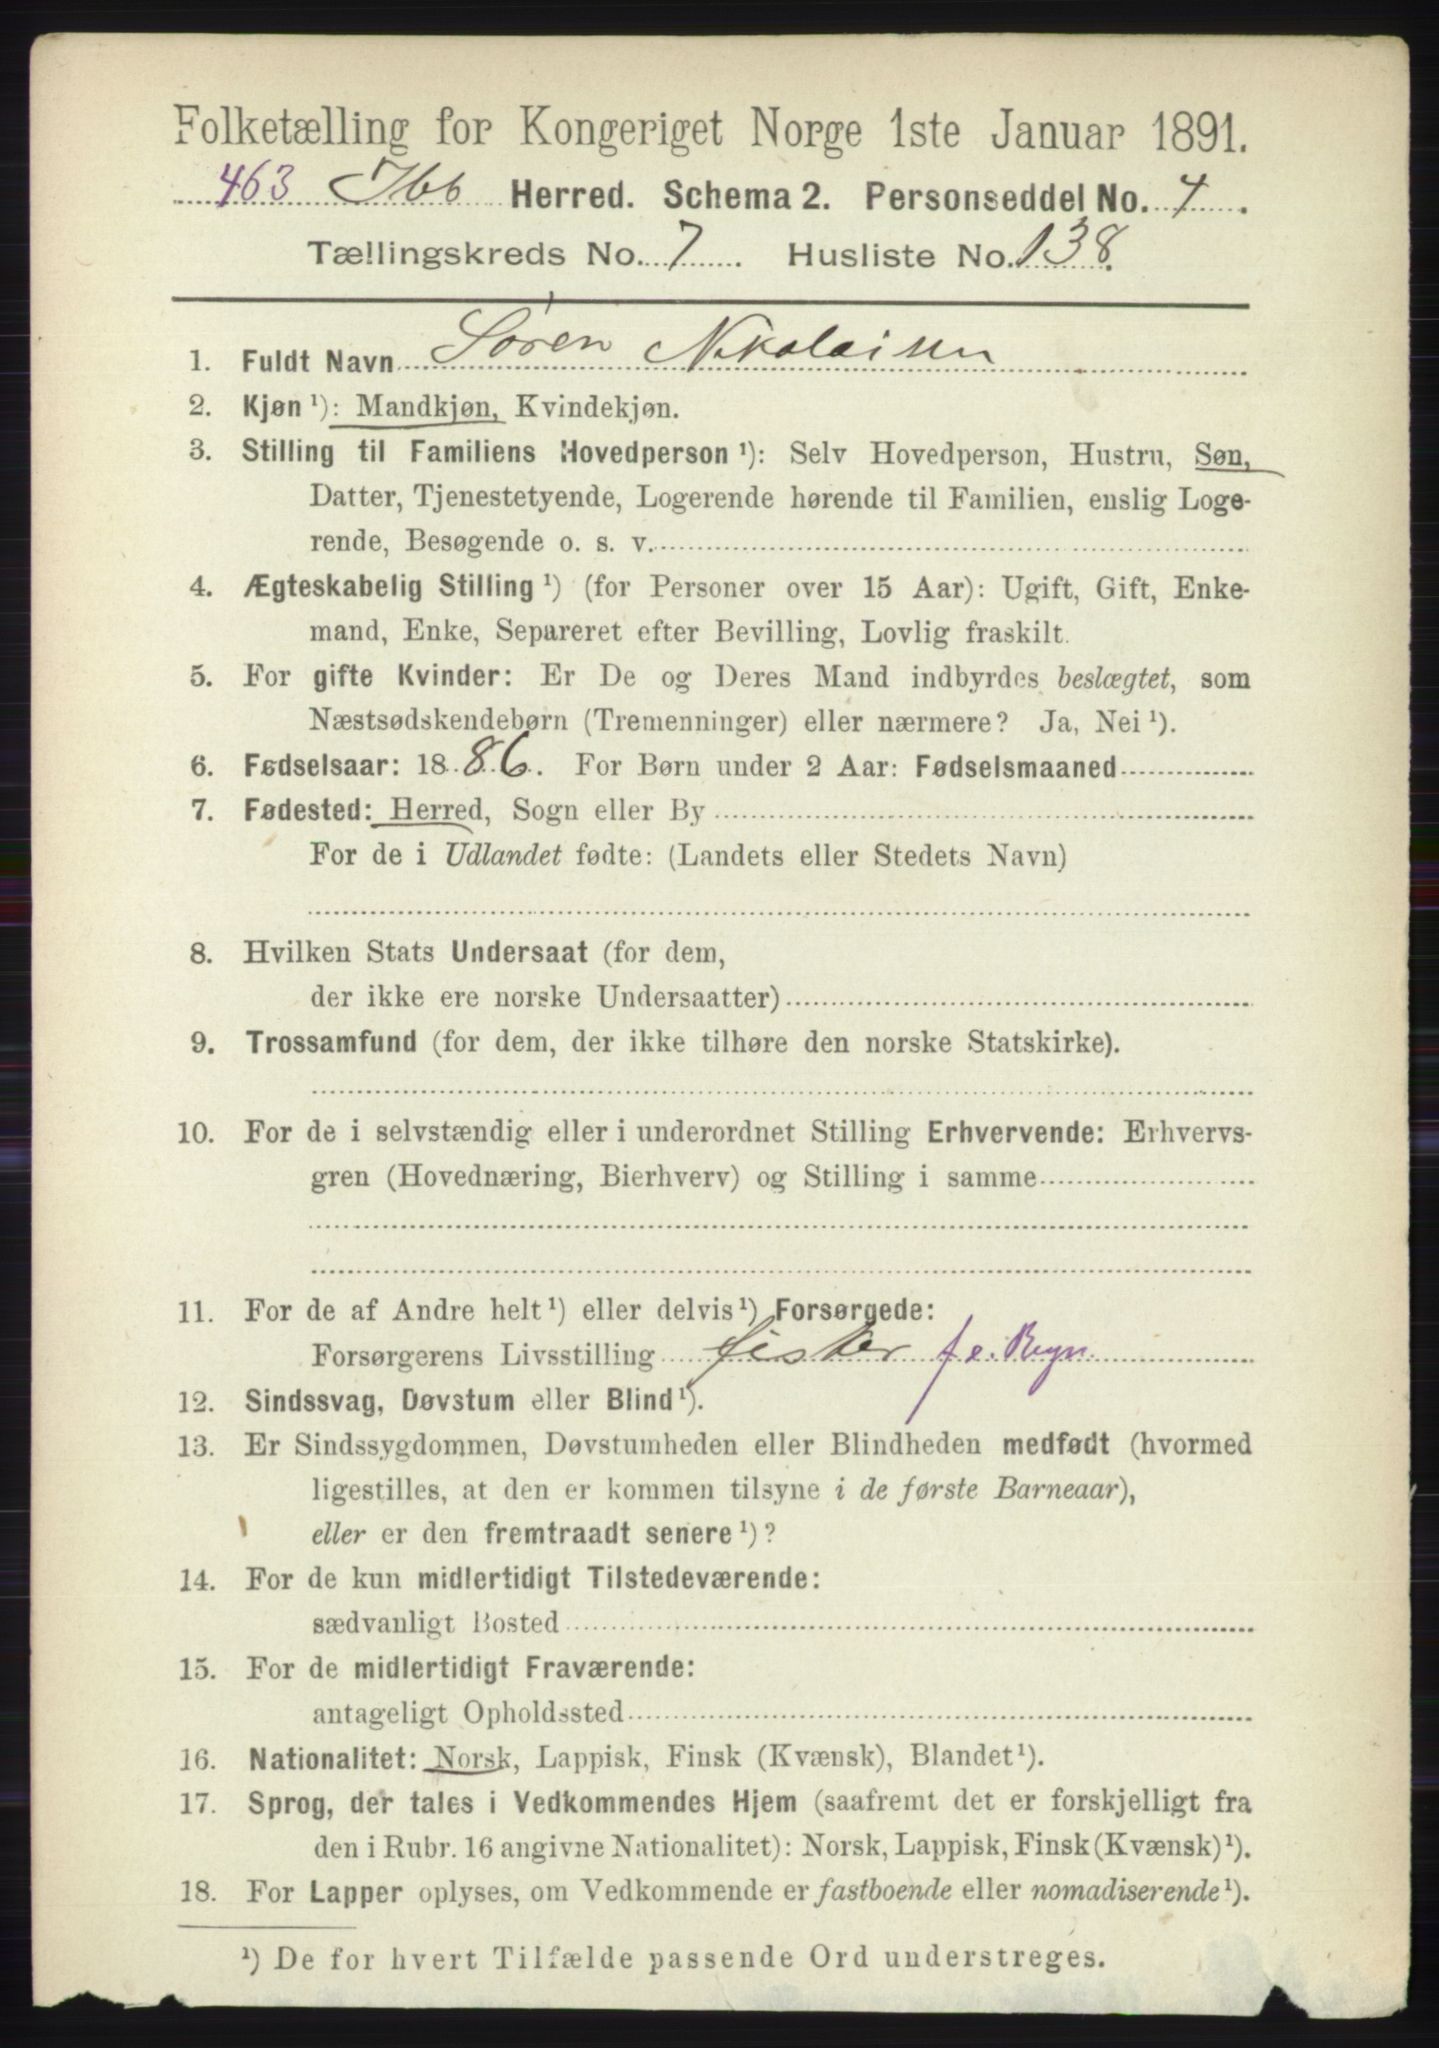 Folketælling for Kongeriget Norge 1ste Januar 1891.
463 Ibb Herred. Schema 2. Personseddel No. 4.
Tællingskreds No. 7. Husliste No. 138.
1. Fuldt Navn Søren Nikolaisen
2. Kjøn ¹): Mandkjøn, Kvindekjøn.
3. Stilling til Familiens Hovedperson ¹): Selv Hovedperson, Hustru, Søn,
Datter, Tjenestetyende, Logerende hørende til Familien, enslig Loge-
rende, Besøgende o. s. v.
4. Ægteskabelig Stilling ¹) (for Personer over 15 Aar): Ugift, Gift, Enke-
mand, Enke, Separeret efter Bevilling, Lovlig fraskilt.
5. For gifte Kvinder: Er De og Deres Mand indbyrdes beslægtet, som
Næstsødskendebørn (Tremenninger) eller nærmere? Ja, Nei ¹).
6. Fødselsaar: 1886. For Børn under 2 Aar: Fødselsmaaned
7. Fødested: Herred, Sogn eller By
For de i Udlandet fødte: (Landets eller Stedets Navn)
8. Hvilken Stats Undersaat (for dem,
der ikke ere norske Undersaatter)
9. Trossamfund (for dem, der ikke tilhøre den norske Statskirke).
10. For de i selvstændig eller i underordnet Stilling Erhvervende: Erhvervs-
gren (Hovednæring, Bierhverv) og Stilling i samme
11. For de af Andre helt ¹) eller delvis ¹) Forsørgede:
Forsørgerens Livsstilling fisker f. e. Regn.
12. Sindssvag, Døvstum eller Blind ¹).
13. Er Sindssygdommen, Døvstumheden eller Blindheden medfødt (hvormed
ligestilles, at den er kommen tilsyne i de første Barneaar),
eller er den fremtraadt senere ¹)?
14. For de kun midlertidigt Tilstedeværende:
sædvanligt Bosted
15. For de midlertidigt Fraværende:
antageligt Opholdssted
16. Nationalitet: Norsk, Lappisk, Finsk (Kvænsk), Blandet ¹).
17. Sprog, der tales i Vedkommendes Hjem (saafremt det er forskjelligt fra
den i Rubr. 16 angivne Nationalitet): Norsk, Lappisk, Finsk (Kvænsk) ¹).
18. For Lapper oplyses, om Vedkommende er fastboende eller nomadiserende ¹).
¹) De for hvert Tilfælde passende Ord understreges.